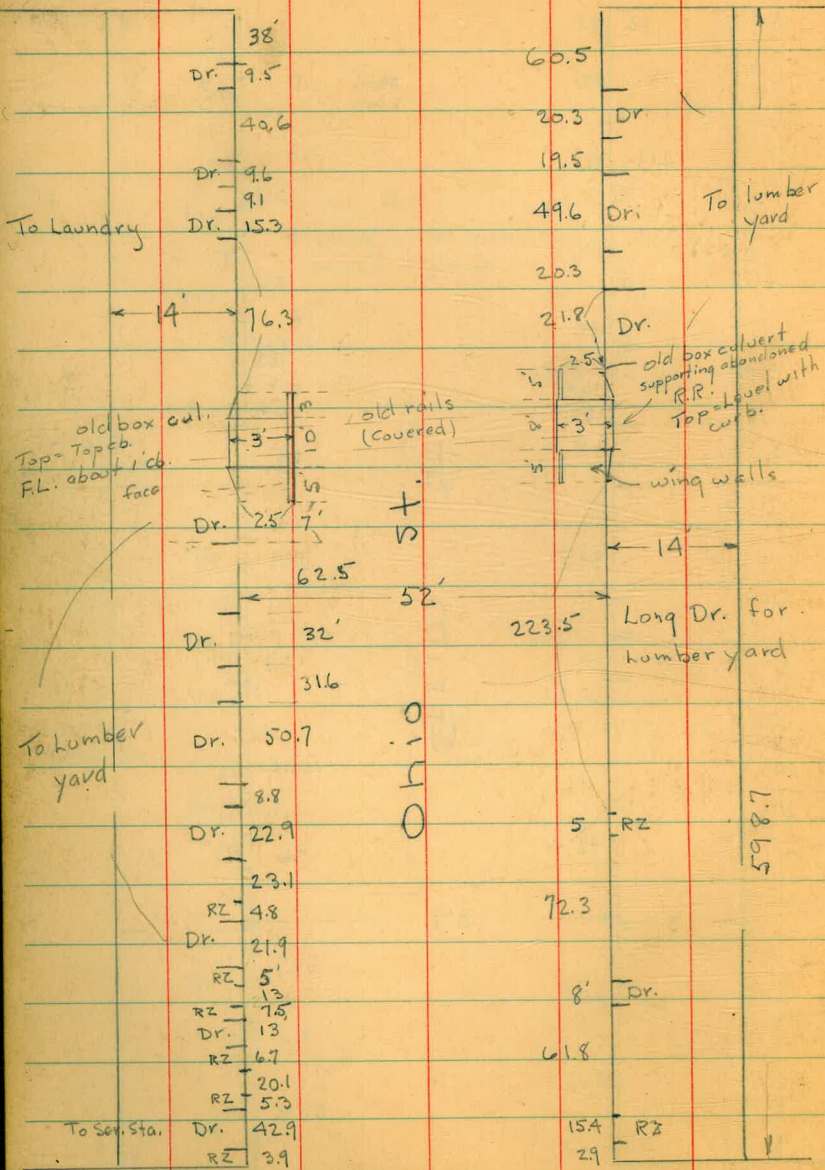 38'
Dr. 9.5
40.6
Dr. 9.6
9.1
To Laundry Dr. 15.3
14' 76.3
old box cul.
Top = Top cb.
F.L. about 1' cb.
face
3'
3
10
5
old rails
(Covered)
2.5
Dr. 7'
62.5
52'
Dr. 32'
31.6
To Lumber
yard
Dr. 50.7
8.8
Dr. 22.9
23.1
RZ 4.8
Dr. 21.9
RZ 5'
13
RZ 7.5
Dr. 13
RZ 6.7
20.1
RZ 5.3
To Ser. Sta. Dr. 42.9
RZ 3.9
Ohio St.
60.5
20.3 Dr.
19.5
49.6 Dr.
To lumber
yard
20.3
21.8 Dr.
2.5
5'
8'
5'
3'
old box culvert
supporting abandoned
R.R.
Top = Level with
curb.
wing walls
14'
223.5
Long Dr. for
Lumber yard
5 RZ
72.3
8' Dr.
61.8
15.4 RZ
2.9
598.7